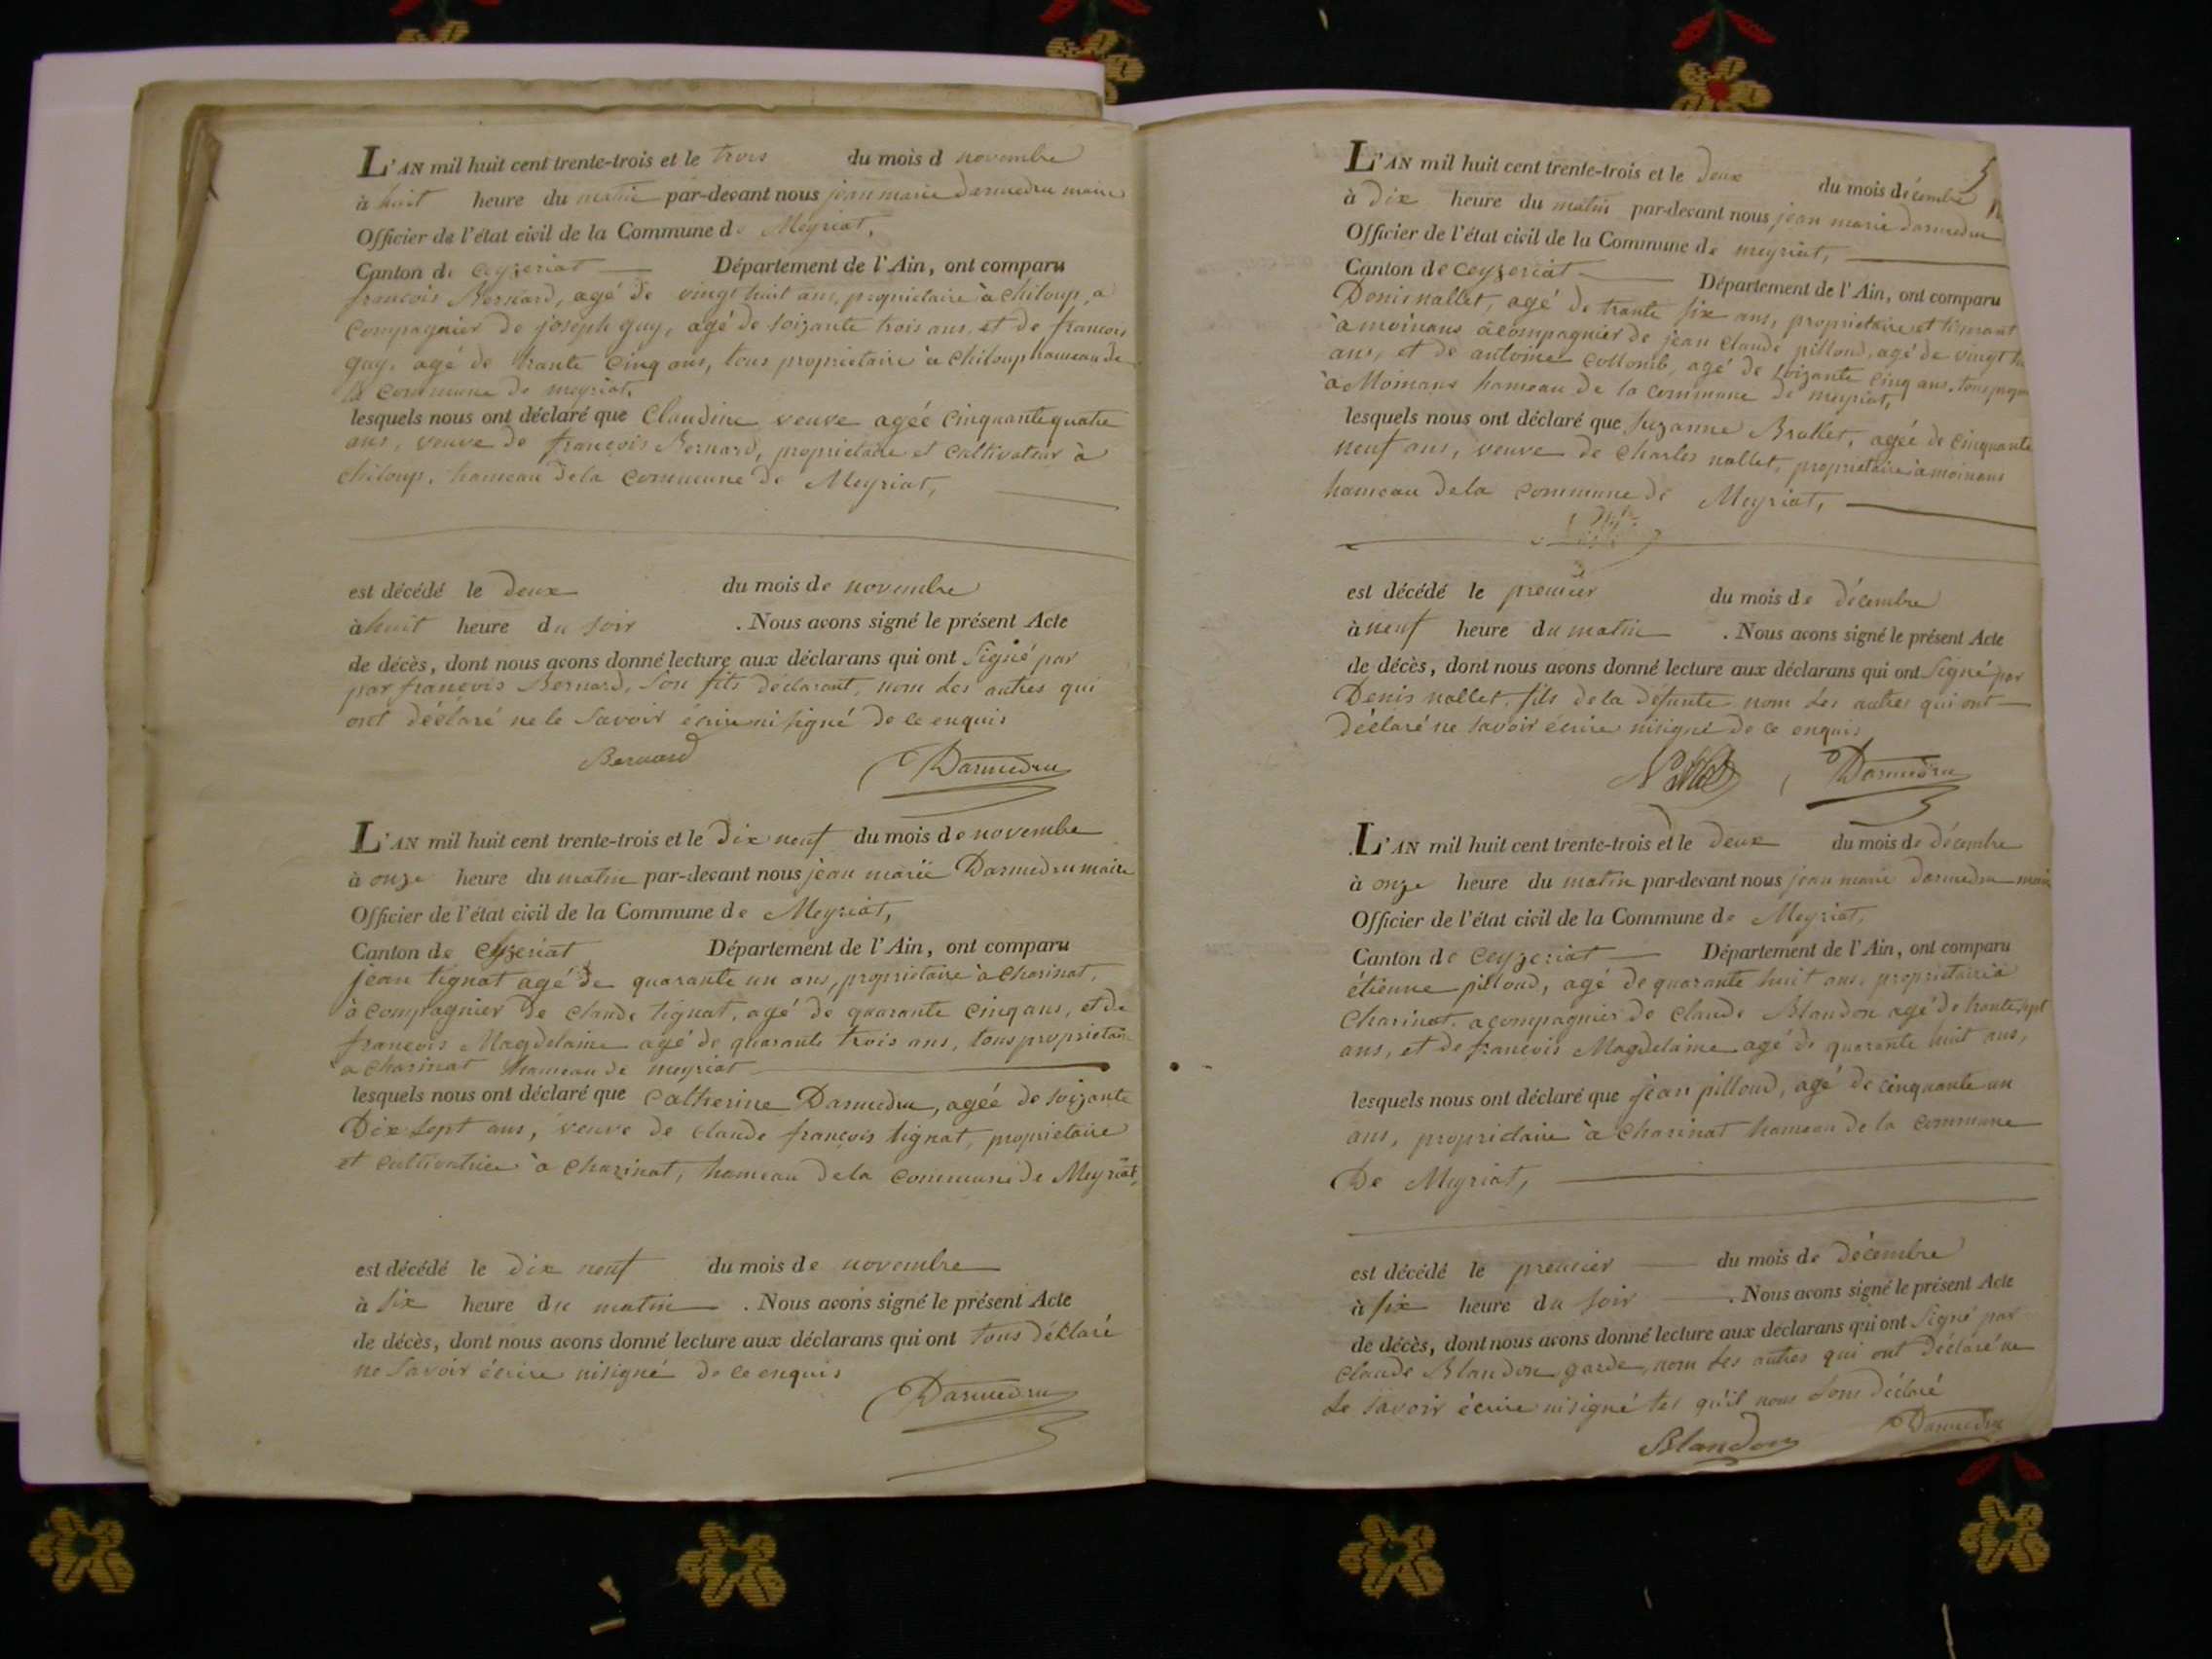 L'AN mil huit cent trente-trois et le trois du mois d novembre
à huit heure du matin par-devant nous jean marie Darmedru maire
Officier de l'état civil de la Commune de Meyriat,
Canton de ceyzeriat Département de l'Ain, ont comparu
francois Bernard, agé de vingt huit ans, proprietaire à chiloup, a
compagnier de joseph guy, agé de soizante trois ans, et de francois
guy, agé de trante cinq ans, tous proprietaire à chiloup hameau de
la commune de meyriat,
lesquels nous ont déclaré que Claudine veuve agéé cinquante quatre
ans, veuve de françois Bernard, proprietaire et cultivateur à
chiloup, hameau de la commune de Meyriat,
est décédé le deux du mois de novembre
à huit heure du soir . Nous avons signé le présent Acte
de décès, dont nous avons donné lecture aux déclarans qui ont Signé par
par francois Bernard, son fils déclarant, nom les autres qui
ont déclaré ne le Savoir écrire ni signé de ce enquis
Bernard Darmedru
L'AN mil huit cent trente-trois et le dix neuf du mois de novembre
à onze heure du matin par-devant nous jean marie Darmedru maire
Officier de l'état civil de la Commune de Meyriat,
Canton de ceyzeriat Département de l'Ain, ont comparu
jean tignat agé de quarante un ans, proprietaire à charinat,
à compagnier de claude tignat, agé de quarante cinq ans, et de
francois Magdelaine agé de quarante trois ans, tous proprietaire
a charinat hameau de meyriat
lesquels nous ont déclaré que catherine Darmedru, agéé de soizante
Dix sept ans, veuve de claude françois tignat, proprietaire
et cultivatrice à charinat, hameau de la commune de Meyriat,
est décédé le dix neuf du mois de novembre
à six heure du matin . Nous avons signé le présent Acte
de décès, dont nous avons donné lecture aux déclarans qui ont tous déclaré
ne Savoir écrire ni signé de ce enquis
Darmedru
5
L'AN mil huit cent trente-trois et le deux du mois décembre
à dix heure du matin par-devant nous jean marie darmedru
Officier de l'état civil de la Commune de meyriat,
Canton de ceyzeriat Département de l'Ain, ont comparu
Denis nallet, agé de trante six ans, proprietaire et
à moinans acompagnier de jean claude pilloud, agé de vingt
ans, et de antoine collomb, agé de soizante cinq ans, tous
à Moinans hameau de la commune de meyriat,
lesquels nous ont déclaré que Suzanne Brallet, agéé de cinquante
neuf ans, veuve de charles nallet, proprietaire à moinans
hameau de la commune de Meyriat,
est décédé le premier du mois de décembre
à neuf heure du matin . Nous avons signé le présent Acte
de décès, dont nous avons donné lecture aux déclarans qui ont Signé par
Denis nallet, fils de la défunte nom les autres qui ont
déclaré ne savoir écrire ni signé de ce enquis
Nallet Darmedru
L'AN mil huit cent trente-trois et le deux du mois de décembre
à onze heure du matin par-devant nous jean marie darmedru maire
Officier de l'état civil de la Commune de Meyriat,
Canton de ceyzeriat Département de l'Ain, ont comparu
étienne pilloud, agé de quarante huit ans, proprietaire à
charinat, acompagnier de claude Blandon agé de trante sept
ans, et de francois Magdelaine agé de quarante huit ans,
lesquels nous ont déclaré que jean pilloud, agé de cinquante un
ans, proprietaire à charinat hameau de la commune
De Meyriat,
est décédé le premier du mois de décembre
à six heure du soir . Nous avons signé le présent Acte
de décès, dont nous avons donné lecture aux déclarans qui ont Signé par
claude Blandon garde, nom les autres qui ont déclaré ne
le savoir écrire ni signé tel qu'il nous sont déclaré
Blandon Darmedru